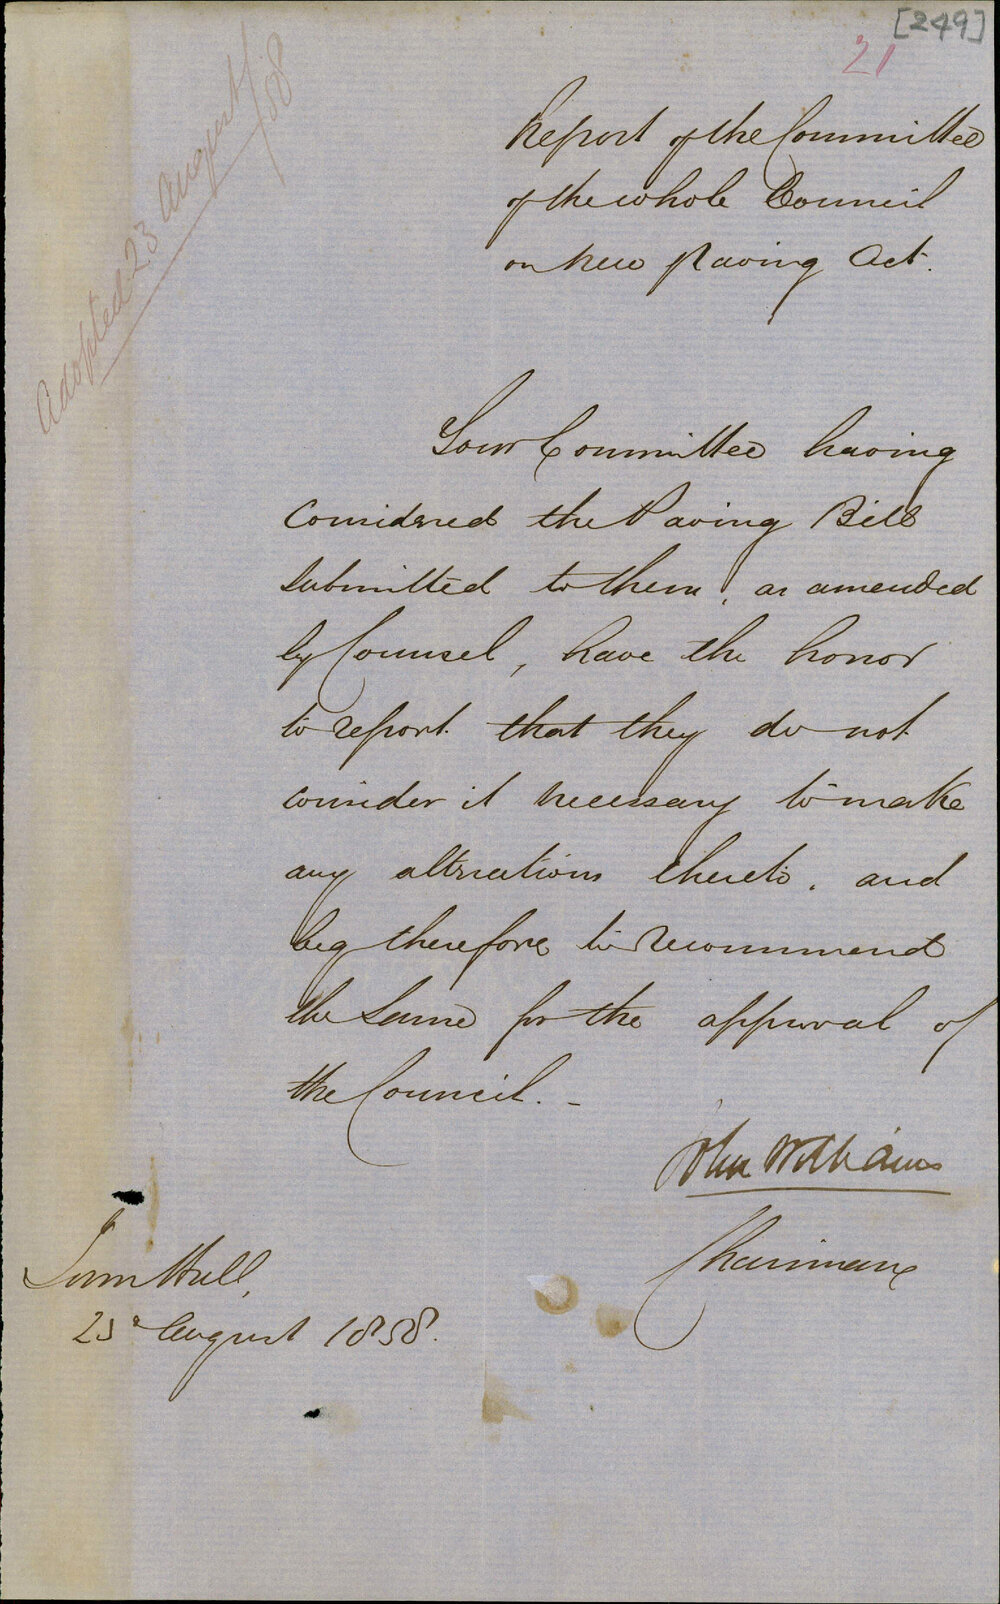 [249]
21
Adopted 23 August /58
Report of the Committee
of the whole Council
on new Paving Act.
Your Committee having
considered the Paving Bill
submitted to them, as amended
by Counsel, have the honor
to report that they do not
consider it necessary to make
any alterations thereto, and
beg therefore to recommend
the same for the approval of
the Council. -
John Williams
Chairman
Town Hall,
23d August 1858.